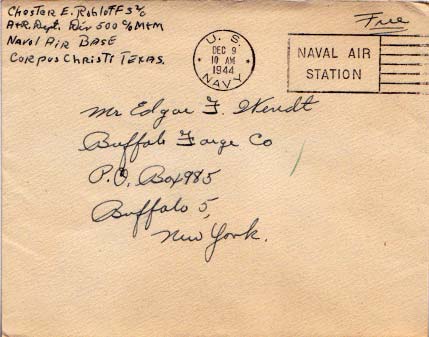 Chester E. Robloff S 2/c
A+R. Dept. Div 500 C/o M+M
Naval Air Base
Corpus Christi Texas.
Free
U. S.
DEC 9
10 AM
1944
NAVY
NAVAL AIR
STATION
Mr Edgar F. Wendt
Buffalo Forge Co
P.O. Box 985
Buffalo 5,
New York.